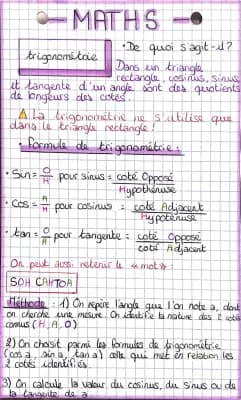 MATHS
trigonométrie
• De quoi s'agit-il?
Dans un triangle
rectangle, cosinus, sinus
et tangente d'un angle sont des quotients
de longeurs des cotés.
⚠ La trigonométrie ne s'utilise que
dans le triangle rectangle!
• Formule de trigonométrie :
• Sin = O/H pour sinus = coté Opposé / Hypothénuse
• Cos = A/H pour cosinus = coté Adjacent / Hypoténuse
• tan = O/A pour tangente : coté Opposé / coté Adjacent
On peut aussi retenir le «mot»:
SOH CAHTOA
Méthode : 1) On repère l'angle que l'on note a, dont
on cherche une mesure. On identifie la nature des 2 cotés
connus (H, A, O)
2) On choisit parmi les formules de trigonométrie
(cos a, sin a, tan a) celle qui met en relation les
2 cotés identifiés.
3) On calcule la valeur du cosinus, du sinus ou de
la tangente de a